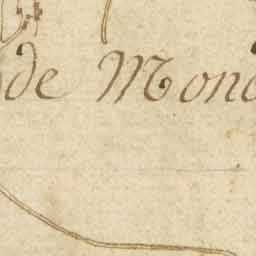 de Mon